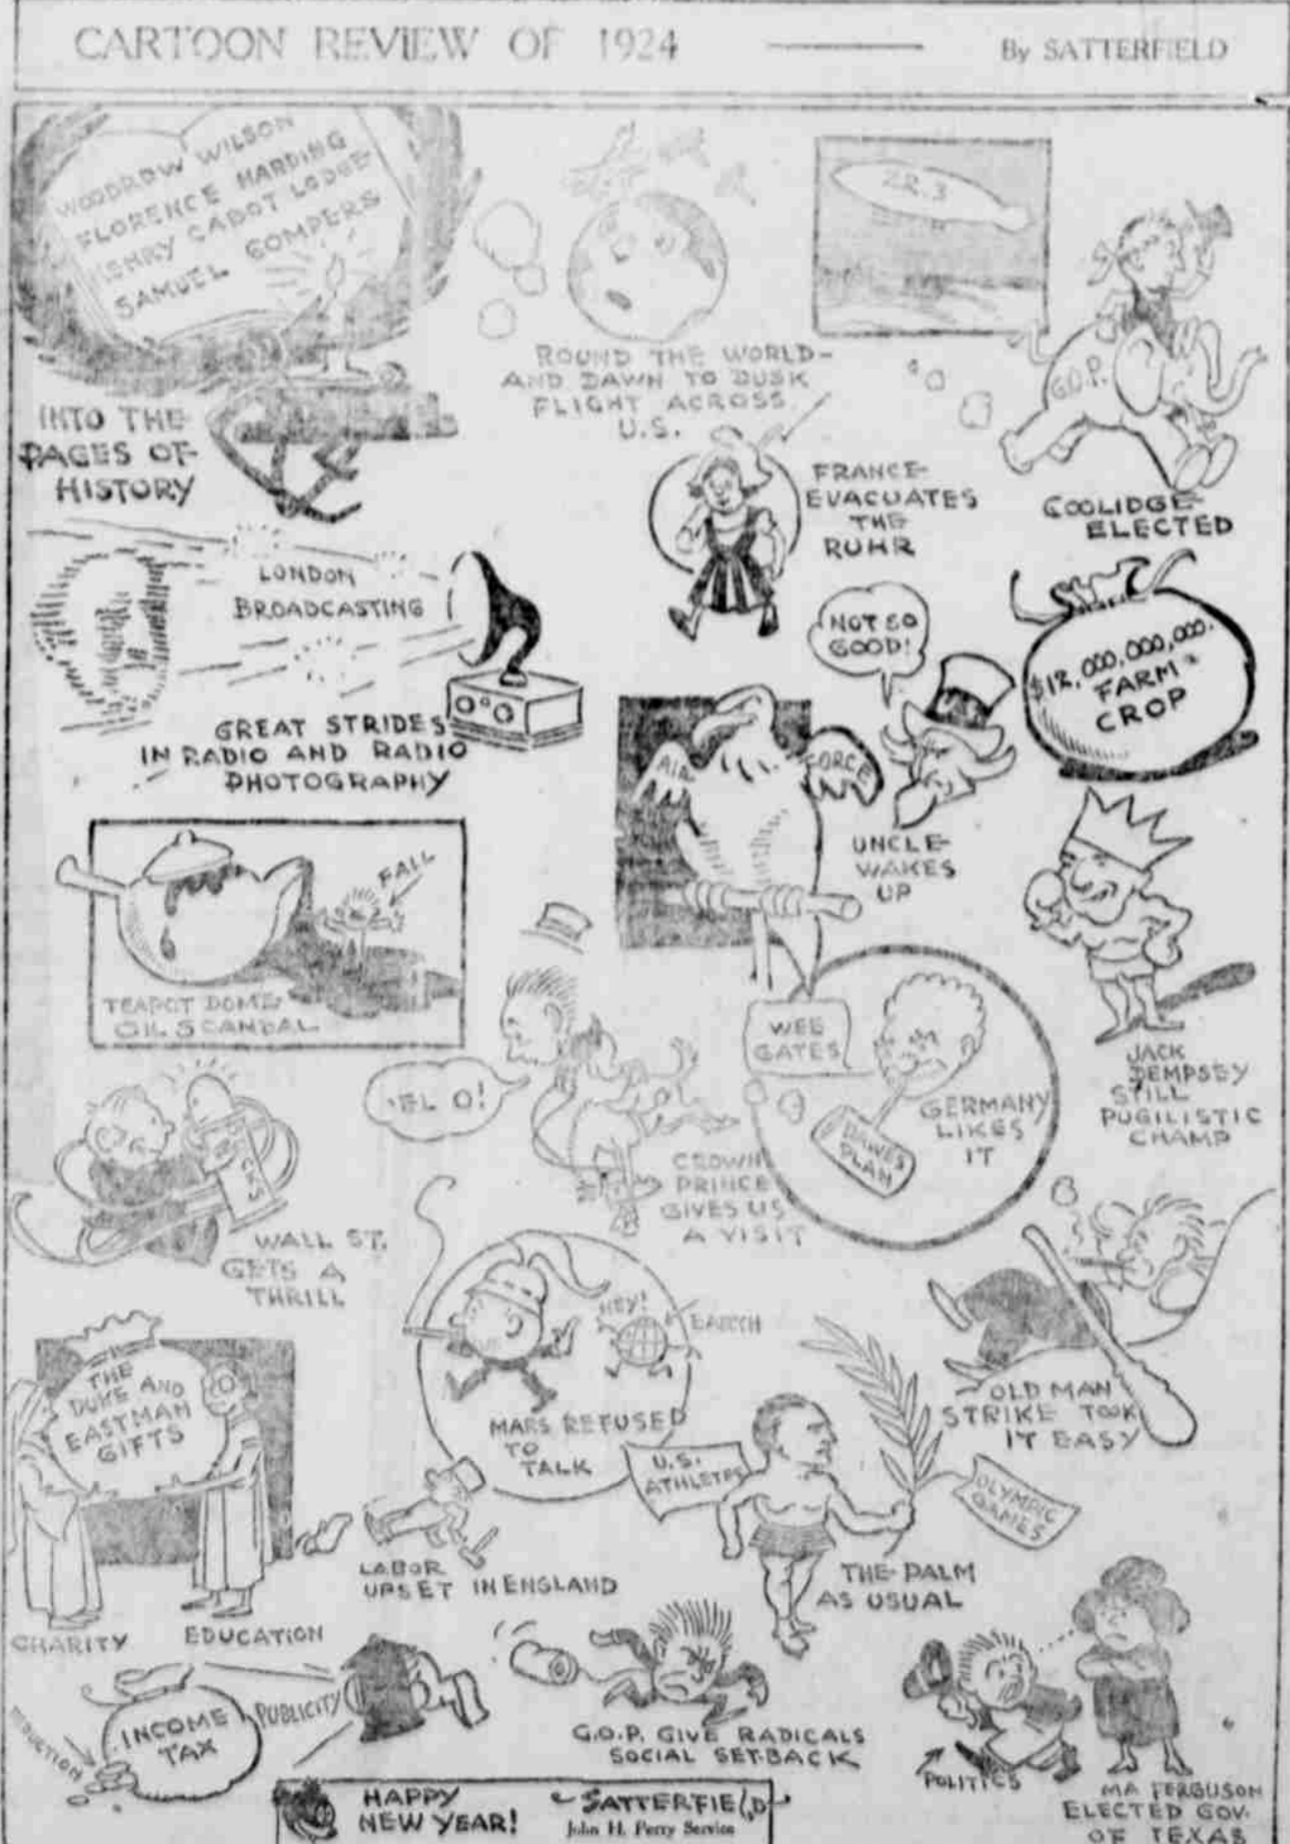 CARTOON REVIEW OF 1924
By SATTERFIELD
WOODROW WILSON
FLORENCE HARDING
HENRY CABOT LODGE
SAMUEL GOMPERS
INTO THE
PAGES OF
HISTORY
ROUND THE WORLD-
AND DAWN TO DUSK
FLIGHT ACROSS
U.S.
ZR.3
G.O.P.
COOLIDGE
ELECTED
FRANCE
EVACUATES
THE
RUHR
LONDON
BROADCASTING
GREAT STRIDES
IN RADIO AND RADIO
PHOTOGRAPHY
NOT SO
GOOD!
AIR
FORCE
UNCLE
WAKES
UP
$12,000,000,000.
FARM
CROP
FALL
TEAPOT DOME
OIL SCANDAL
JACK
DEMPSEY
STILL
PUGILISTIC
CHAMP
'EL O!
CROWN
PRINCE
GIVES US
A VISIT
WEE
GATES
DAWES
PLAN
GERMANY
LIKES
IT
WALL ST.
GETS A
THRILL
HEY!
EARTH
MARS REFUSED
TO
TALK
OLD MAN
STRIKE TOOK
IT EASY
THE
DUKE AND
EASTMAN
GIFTS
CHARITY
EDUCATION
LABOR
UPSET IN ENGLAND
U.S.
ATHLETES
OLYMPIC
GAMES
THE PALM
AS USUAL
INCOME
TAX
PUBLICITY
G.O.P. GIVE RADICALS
SOCIAL SET-BACK
POLITICS
MA FERGUSON
ELECTED GOV.
OF TEXAS
HAPPY
NEW YEAR!
SATTERFIELD
John H. Perry Service